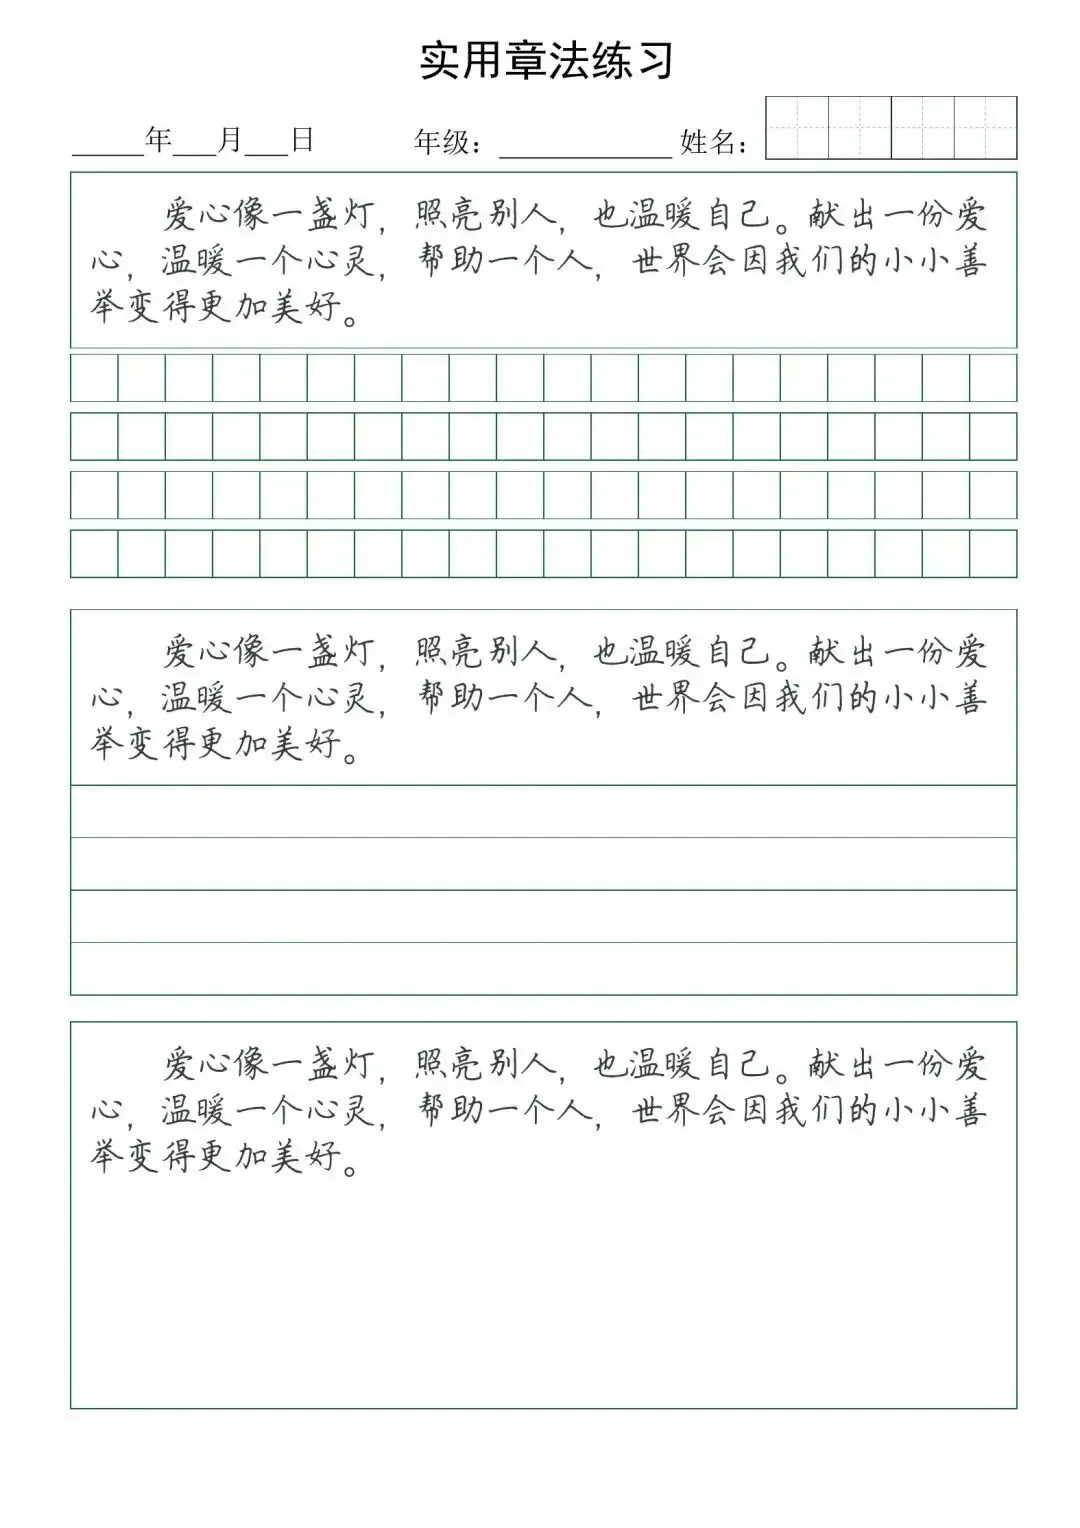 实用章法练习
_____年___月___日 年级：____________ 姓名：
爱心像一盏灯，照亮别人，也温暖自己。献出一份爱
心，温暖一个心灵，帮助一个人，世界会因我们的小小善
举变得更加美好。
爱心像一盏灯，照亮别人，也温暖自己。献出一份爱
心，温暖一个心灵，帮助一个人，世界会因我们的小小善
举变得更加美好。
爱心像一盏灯，照亮别人，也温暖自己。献出一份爱
心，温暖一个心灵，帮助一个人，世界会因我们的小小善
举变得更加美好。